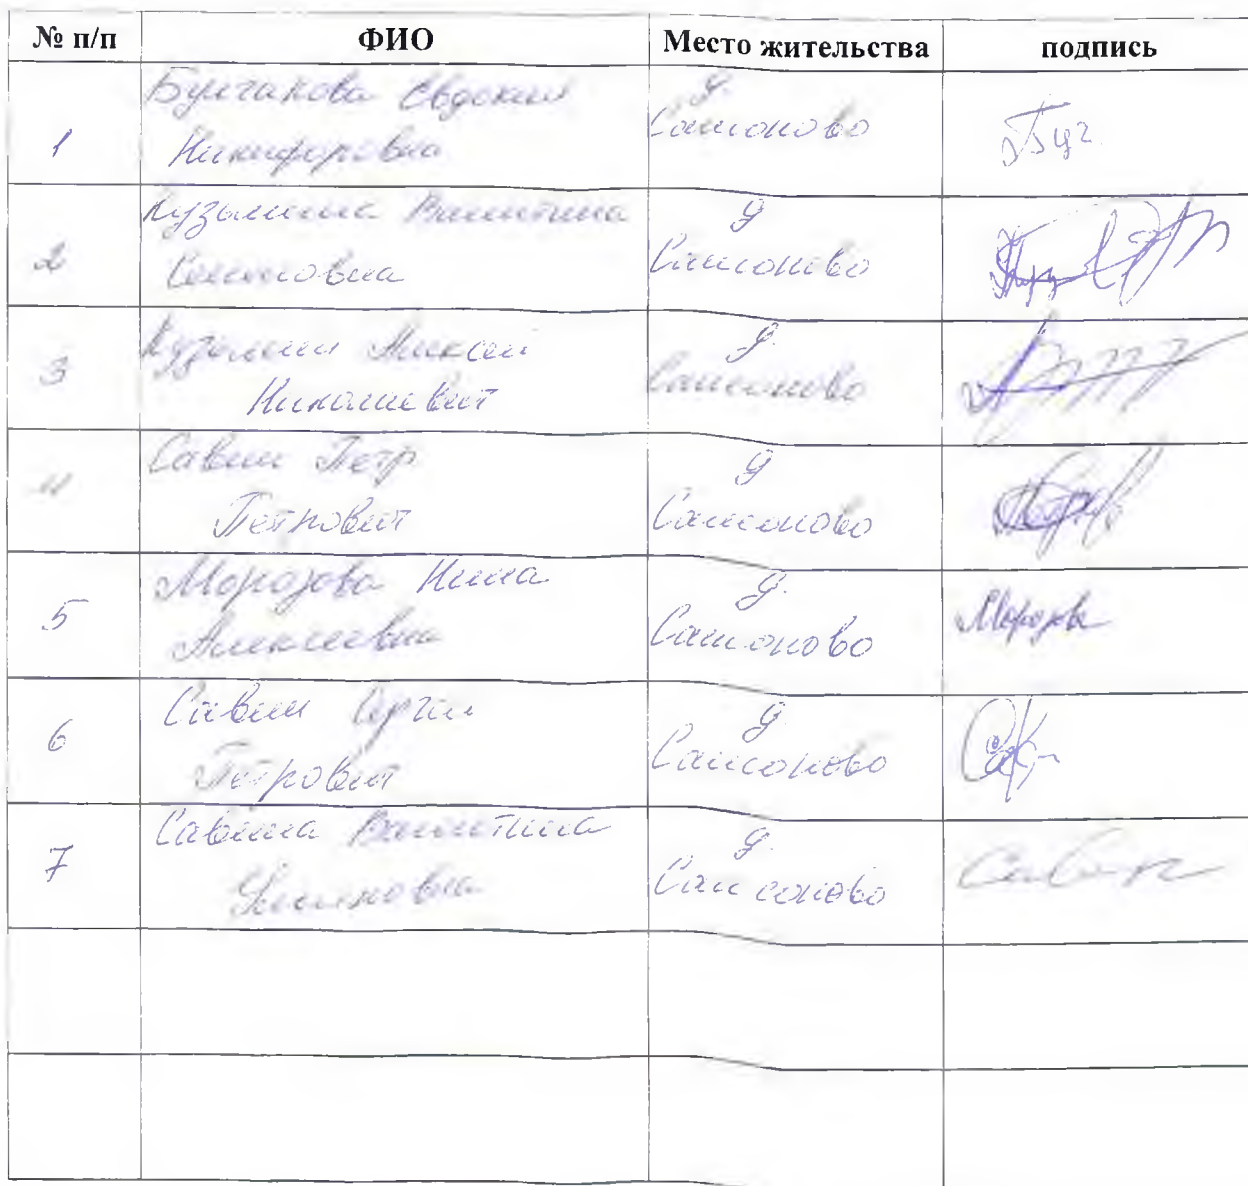 № п/п ФИО Место жительства подпись
Булгакова Евдокия д.
1 Никифоровна Самсоново
Кузьмина Валентина д
2 Семеновна Самсоново
Кузьмин Алексей д
3 Николаевич Самсоново
Савин Петр д
4 Петрович Самсоново
Морозова Нина д.
5 Алексеевна Самсоново Морозова
Савин Сергей д
6 Петрович Самсоново
Савина Валентина д.
7 Самсоново Савин